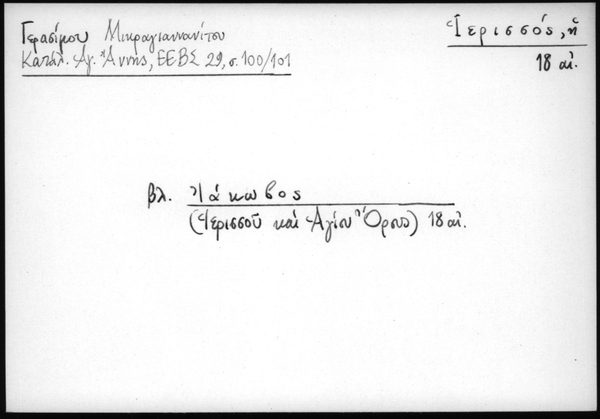 Γερασίμου Μικραγιαννανίτου
Κατάλ. Ἁγ. Ἄννης, ΕΕΒΣ 29, σ. 100/101
Ἱερισσός, ἡ
18 αἰ.
βλ. Ἰάκωβος
(Ἱερισσοῦ καὶ Ἁγίου Ὄρους) 18 αἰ.